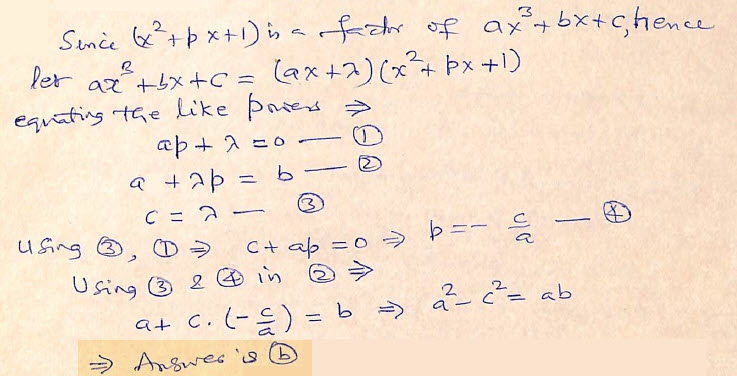 Since (x²+px+1) is a factor of ax³+bx+c, hence
let ax³+bx+c = (ax+λ)(x²+px+1)
equating the like powers ⇒
ap+λ=0 — ①
a+λp = b — ②
c = λ — ③
Using ③, ① ⇒ c+ap=0 ⇒ p=-c/a — ④
Using ③ & ④ in ② ⇒
a+ c.(-c/a) = b ⇒ a²-c²= ab
⇒ Answer is ⓑ